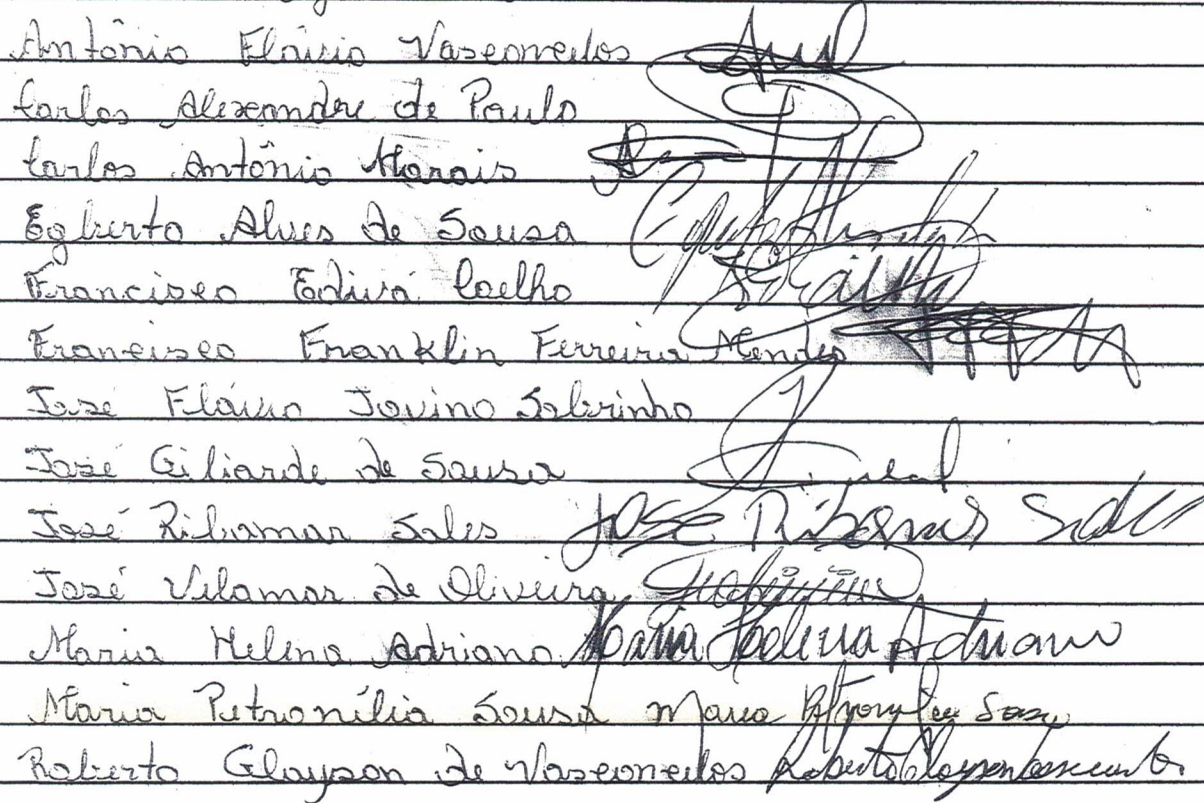 Antônio Flávio Vasconcelos
Carlos Alexandre de Paulo
Carlos Antônio Morais
Egberto Alves de Sousa
Francisco Edivá Coelho
Francisco Franklin Ferreira Mendes
José Flávio Jovino Sobrinho
José Giliarde de Sousa
José Ribamar Sales José Ribamar Sales
José Vilamar de Oliveira
Maria Helena Adriano Maria Helena Adriano
Maria Petronília Sousa Maria
Roberto Glayson de Vasconcelos Roberto Glayson